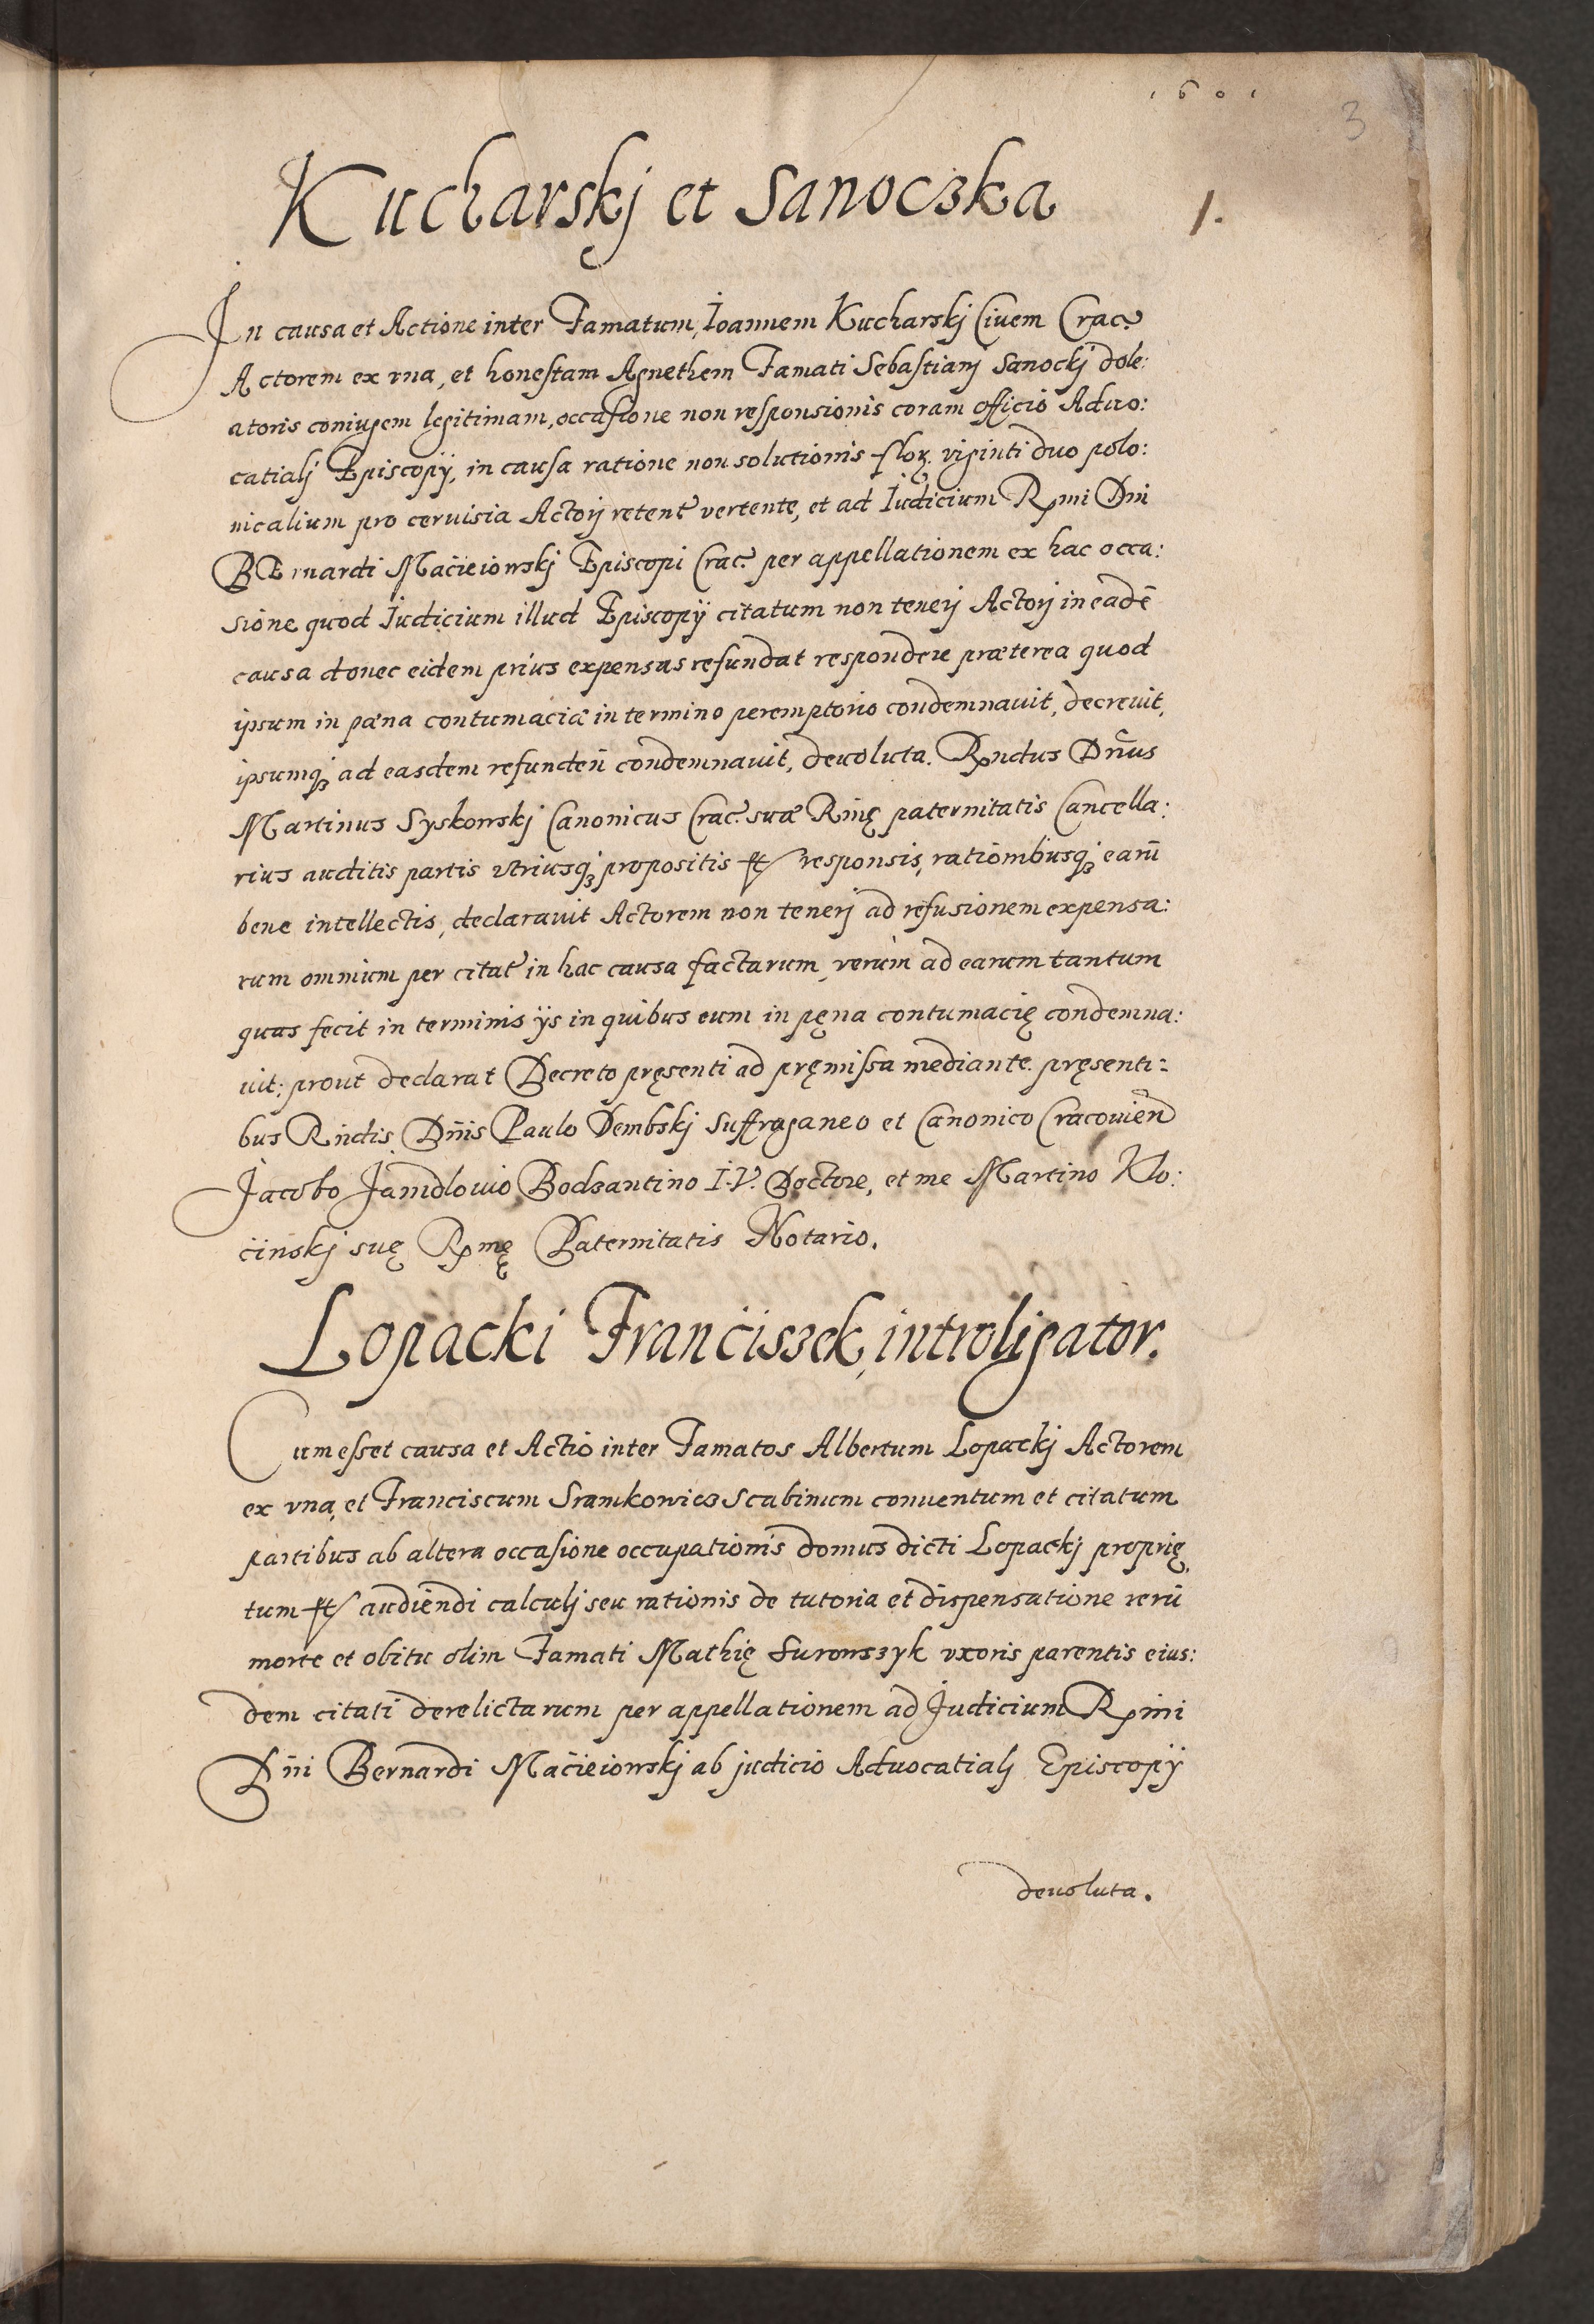 1601
3
Kucharskj et Sanoczka
1.
In causa et Actione inter Famatum, Ioannem Kucharskj Ciuem Crac.
Actorem ex vna, et honestam Agnethem Famati Sebastianj Sanockj dole:
atoris coniugem legitimam, occasione non responsionis coram officio Aduo:
catialj Episcopÿ, in causa ratione non solutionis flor. viginti duo polo:
nicalium pro ceruisia Actorj retent vertente, et ad Iudicium Rmi Dni
BErnardi Maċieiowskj Episcopi Crac. per appellationem ex hac occa:
sione quod Iudicium illud Episcopÿ citatum non tenerj Actorj in eadē
causa donec eidem prius expensas refundat respondere præterea quod
ipsum in pæna contumaciæ in termino peremptorio condemnauit, decreuit,
ipsumq₃ ad easdem refundēn condemnauit, deuoluta. Rndus Dn̄us
Martinus Syskowskj Canonicus Crac. suæ Rmę paternitatis Cancella:
rius auditis partis vtriusq₃ propositis et responsis, rationibusq₃ earū
bene intellectis, declarauit Actorem non tenerj ad refusionem expensa:
rum omnium per citat in hac causa factarum, verùm ad earum tantum
quas fecit in terminis ÿs in quibus eum in pęna contumacię condemna:
uit: prout declarat Decreto pręsenti ad pręmissa mediante. pręsenti:
bus Rndis Dn̄is Paulo Dembskj Suffraganeo et Canonico Cracouien
Jacobo Janidlouio Bodzantino I. V. Doctore, et me Martino Klo:
ċinskj suę Rmę Paternitatis Notario.
Lopacki Franċiszek, introligator.
Cum esset causa et Actio inter Famatos Albertum Lopackj Actorem
ex vna, et Franciscum Sramkowicz Scabinum conuentum et citatum
partibus ab altera occasione occupationis domus dicti Lopackj proprię
tum et audiendi calculj seu rationis de tutoria et dispensatione rerū
morte et obitu olim Famati Mathię Surowszyk vxoris parentis eius:
dem citati derelictarum per appellationem ad Judicium Rmi
Dn̄i Bernardi Maċieiowskj ab judicio Aduocatialj Episcopÿ
deuoluta.